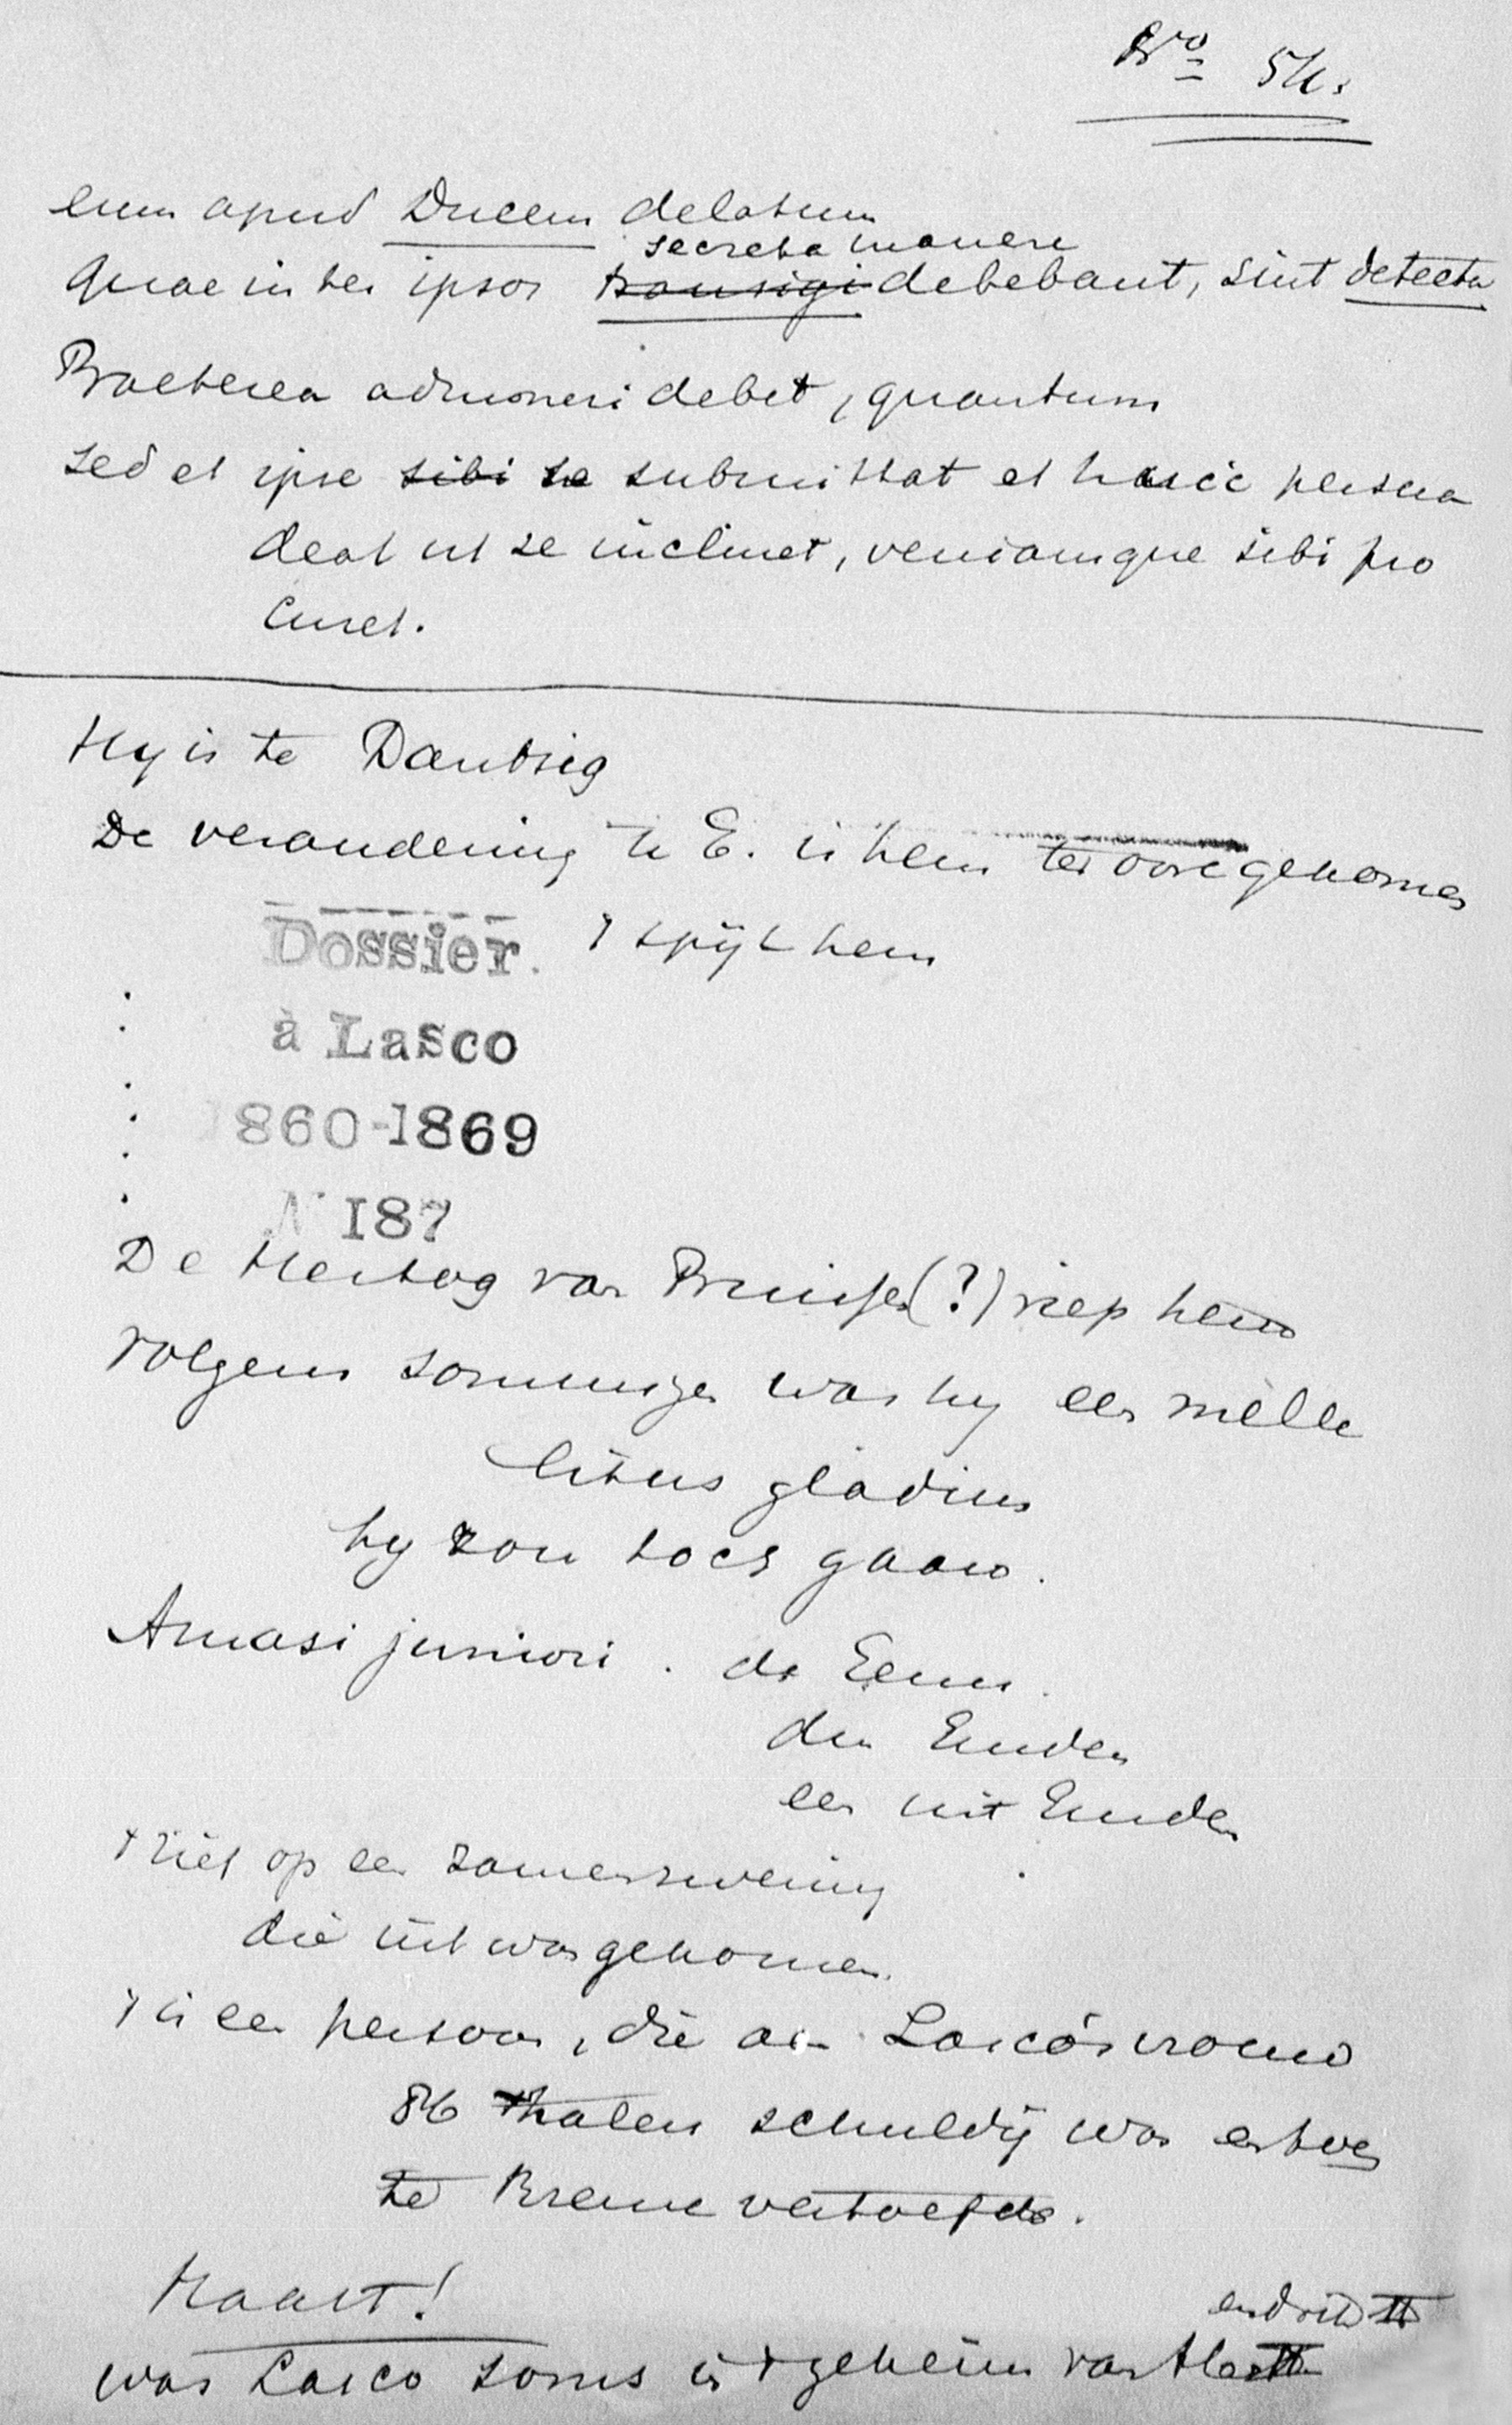 No 54.
eum apud Ducem delatum
secreta manere
Quae inter ipsos transigi debebant, sint detecta
Praeterea admoneri debet, quantum
sed et ipse sibi se submittat et huic persua
deat ut se inclinet, veniamque sibi pro
curet.
Hy is te Dantsig
De verandering te E. is hem ter oore gekomen
't spijt hem
Dossier.
à Lasco
1860-1869
N 187
De Hertog van Pruisen (?) riep hem
Volgens sommigen was hy een melle
litus gladius
hy zou toch gaan.
Amasi juniori. de Eems
den Emden
een uit Emden
't Ziet op een zamenzwering
die uit was gekomen.
't is een persoon, die aan Lasco's vrouw
86 thalers schuldig was en toen
te Breme vertoefde.
Haast!
was Lasco soms in 't geheim van